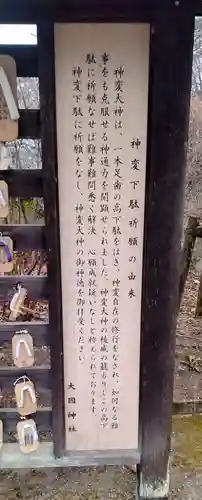 神変下駄祈願の由来
神変大神は、一本足歯の高下駄をはき、神変自在の修行をなされ、如何なる難
事をも克服せる神通力を開顕せられました。神変大神の稜威の籠りしこの高下
駄に祈願なせば難事難問悉く解決、心願成就疑いなしと称えられております。
神変下駄に祈願をなし、神変大神の御神徳を御拝受ください。
大國神社